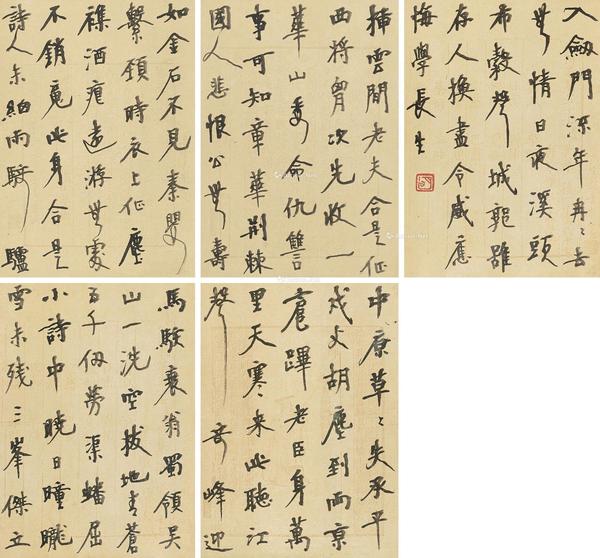 中原草々失承平
戍火胡塵到兩京
扈蹕老臣身萬
里天寒來此聽江
聲 奇峰迎
馬駭衰翁蜀領吳
山一洗空拔地青蒼
五千仞勞渠蟠屈
小詩中曉日曈曨
雪未殘三峯傑立
插雲間老夫合是征
西將胷次先收一
華山委命仇讐
事可知章華荊棘
國人悲恨公無壽
如金石不見秦嬰
繫頸時衣上征塵
襍酒痕遠游無處
不銷魂此身合是
詩人未細雨騎驢
入劍門流年冉々去
無情日夜溪頭
布穀聲城郭雖
存人換盡令威應
悔學長生